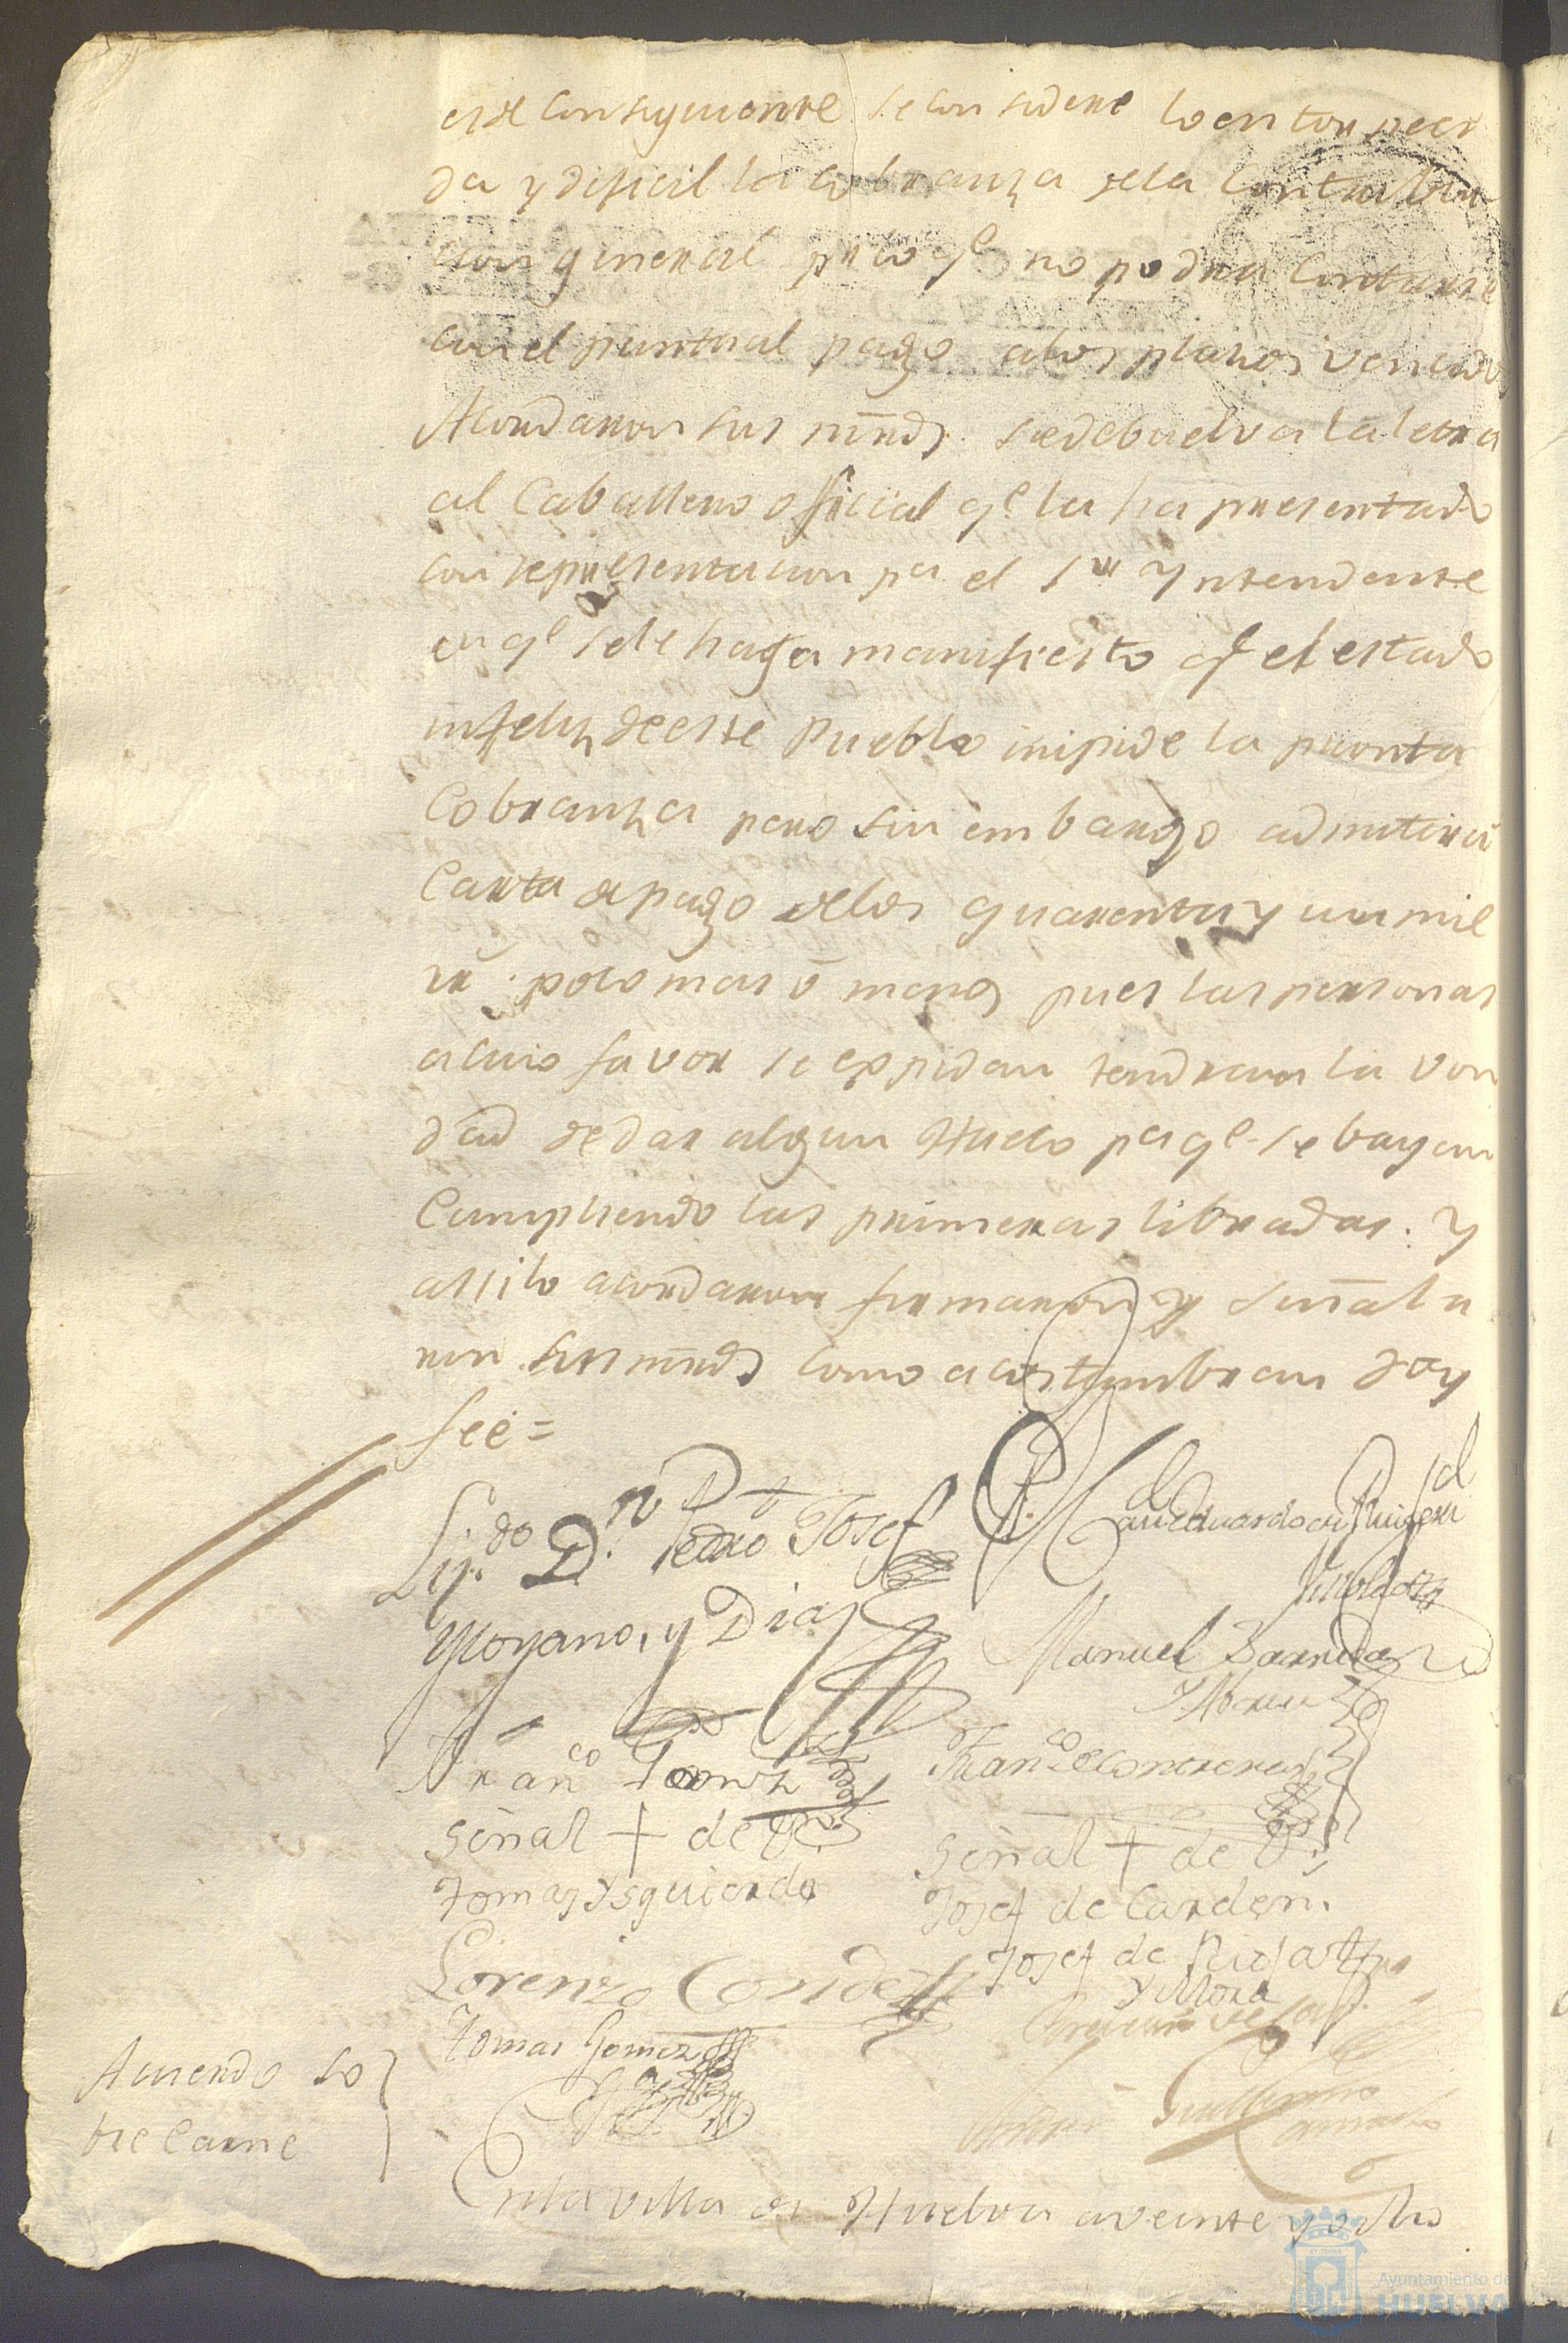 es de consiguiente se considere lo entorpeci
da y dificil la cobranza dela Contribu
cion general pr lo qe no podra contarse
con el puntual pago a los plazos vencidos
Acordaron sus mrds. se debuelva la letra
al Caballero official qe la ha presentado
con representacion pa el Sor Yntendente
en qe sele haga manifiesto qe el estado
infeliz de este Pueblo inpide la pronta
Cobranza pero sin embargo admitira
Carta de pago delos quarenta y un mil
rr. poco mas ô menos pues las personas
a cuio favor se expidan tendran la von
dad de dar algun Hueco pa qe se bayan
Cumpliendo las primeras libradas. Y
assi lo acordaron firmaron y señala
ron sus mrds como acostumbran doy
fee =
Liz.do D.n Pedro Josef
Moyano, y Diaz
Manuel Barreda
Franco Gomez
Franco de Contreras
Señal + de
Señal + de
Tomas Ysquierdo
Josef de Carden.
Lorenzo Conde
Josef de
y Mora
Tomas Gomez
Acuerdo so
bre Carne
En la villa de Huelva a veinte y ocho
Ayuntamiento de
HUELVA